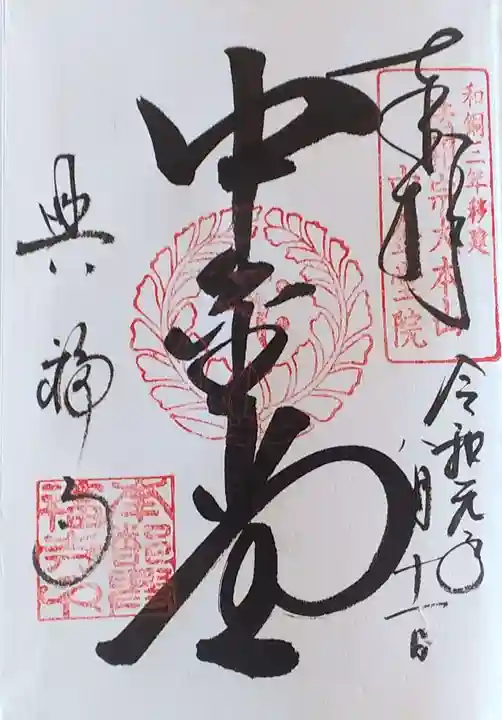 奉拝
和銅三年移建
法相宗大本山
令和元年
八月十一日
中金堂
興福寺